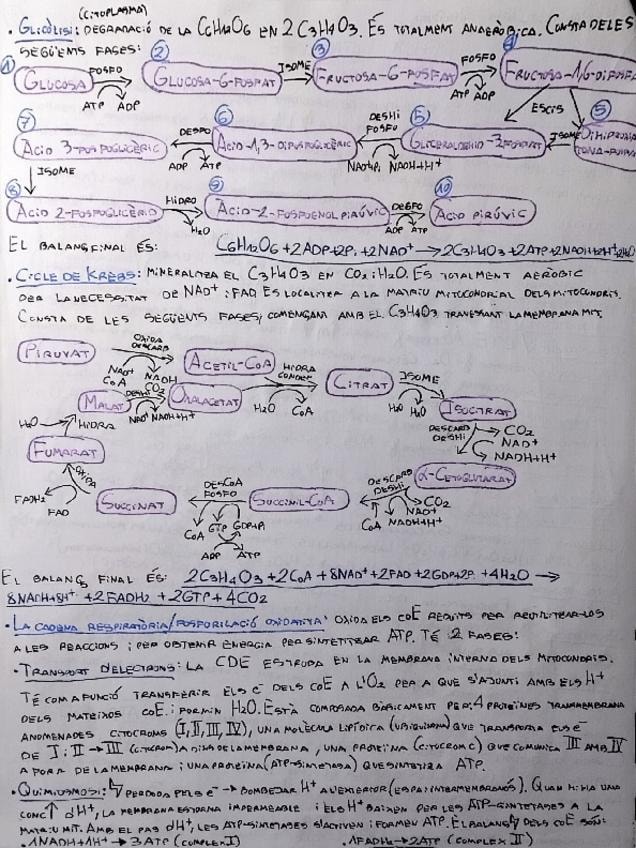 (CITOPLASMA)
· GLICÒLISI: DEGRADACIÓ DE LA C6H12O6 EN 2 C3H4O3. ÉS TOTALMENT ANAERÒBICA. CONSTA DE LES
SEGÜENTS FASES:
① GLUCOSA FOSFO ATP ADP ② GLUCOSA-6-FOSFAT ISOME ③ FRUCTOSA-6-FOSFAT FOSFO ATP ADP ④ FRUCTOSA-1,6-DIFOSFA
ESCIS
⑦ ÀCID 3-FOSFOGLICÈRIC DESFO ADP ATP ⑥ ÀCID-1,3-DIFOSFOGLICÈRIC DESHI FOSFO NAD+Pi NADH+H+ ⑤ GLICERALDEHID-3-FOSFAT ISOME ⑤
ISOME
⑧ ÀCID 2-FOSFOGLICÈRID HIDRO H2O ⑨ ÀCID-2-FOSFOENOL PIRÚVIC DESFO ADP ATP ⑩ ÀCID PIRÚVIC
EL BALANÇ FINAL ÉS: C6H12O6+2ADP+2Pi+2NAD+→2C3H4O3+2ATP+2NADH+2H++2H2O
· CICLE DE KREBS: MINERALITZA EL C3H4O3 EN CO2 i H2O. ÉS TOTALMENT AERÒBIC
PER LA NECESSITAT DE NAD+ i FAD. ES LOCALITZA A LA MATRIU MITOCONDRIAL DELS MITOCONDRIS.
CONSTA DE LES SEGÜENTS FASES, COMENÇAM AMB EL C3H4O3 TRAVESSANT LA MEMBRANA MIT.
PIRUVAT OXIDA DESCARB NAD+ CoA NADH CO2 ACETIL-CoA HIDRA CONDEN H2O CoA CITRAT ISOME H2O H2O ISOCITRAT
MALAT DESHI NAD+ NADH+H+ OXALACETAT
H2O HIDRA
DESCARB DESHI CO2 NAD+ NADH+H+
FUMARAT
OXIDA FADH2 FAD
SUCCINAT DESCoA FOSFO CoA GTP GDP+Pi ADP ATP SUCCINIL-CoA DESCARB DESHI CO2 NAD+ CoA NADH+H+ α-CETOGLUTARAT
EL BALANÇ FINAL ÉS: 2C3H4O3+2CoA+8NAD++2FAD+2GDP+2Pi+4H2O →
8NADH+8H++2FADH2+2GTP+4CO2
· LA CADENA RESPIRATÒRIA/FOSFORILACIÓ OXIDATIVA: OXIDA ELS CoE REDUITS PER REUTILITZAR-LOS
A LES REACCIONS i PER OBTENIR ENERGIA PER SINTETITZAR ATP. TÉ 2 FASES:
· TRANSPORT D'ELECTRONS: LA CDE ES TROBA EN LA MEMBRANA INTERNA DELS MITOCONDRIS.
TÉ COM A FUNCIÓ TRANSFERIR ELS e- DELS CoE A L'O2 PER A QUE S'AJUNTI AMB ELS H+
DELS MATEIXOS CoE i FORMIN H2O. ESTÀ COMPOSADA BÀSICAMENT PER: 4 PROTEÏNES TRANSMEMBRANA
ANOMENADES CITOCROMS (I, II, III, IV), UNA MOLÈCULA LIPÍDICA (UBIQUINONA) QUE TRANSPORTA ELS e-
DE I i II → III (CITOCROM) A DINS DE LA MEMBRANA, UNA PROTEÏNA (CITOCROM C) QUE COMUNICA III AMB IV
A FORA DE LA MEMBRANA i UNA PROTEÏNA (ATP-SINTETASA) QUE SINTETITZA ATP.
· QUIMIOSMOSI: PERDUDA PELS e- → BOMBEJAR H+ A L'EXTERIOR (ESPAI INTERMEMBRANÓS). QUAN HI HA UNA
CONC ↑ d'H+, LA MEMBRANA ESTORNA IMPERMEABLE i ELS H+ BAIXEN PER LES ATP-SINTETASES A LA
MATRIU MIT. AMB EL PAS d'H+, LES ATP-SINTETASES S'ACTIVEN i FORMEN ATP. EL BALANÇ DELS CoE SÓN:
· 1NADH+1H+ → 3ATP (COMPLEX I) · 1FADH2 → 2ATP (COMPLEX II)